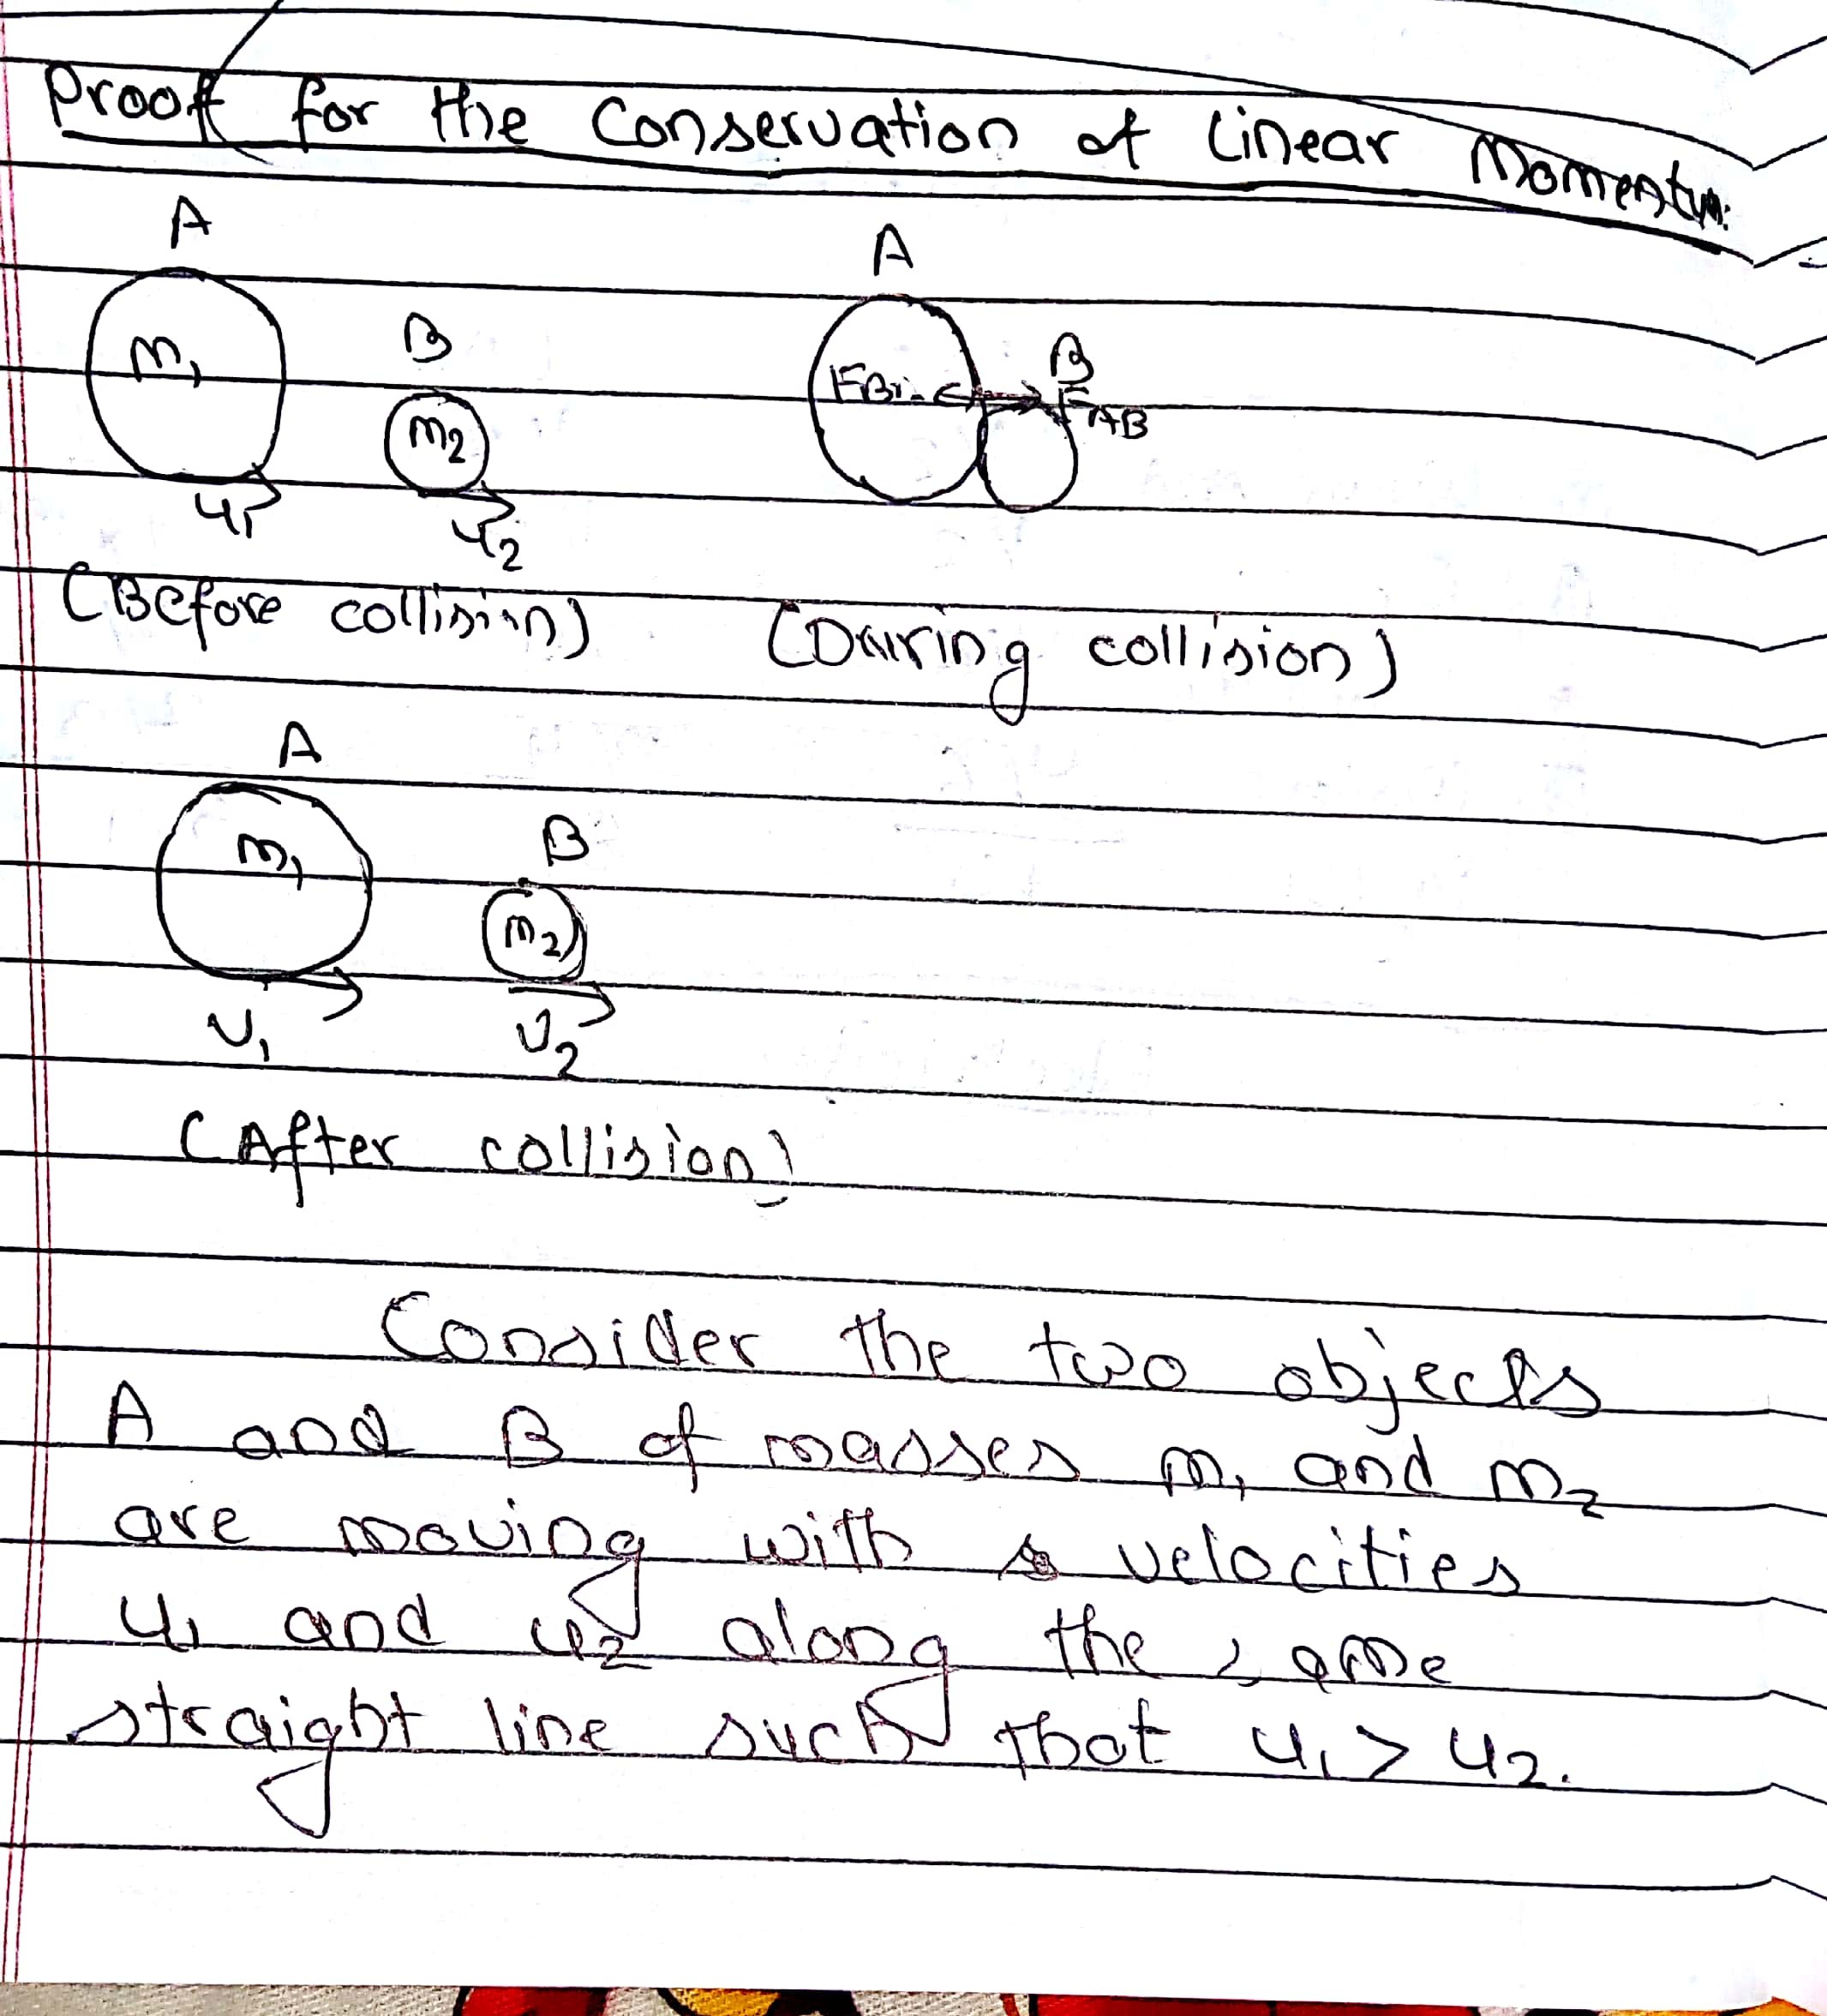 Proof for the Conservation of Linear Momentum:
A
A
m₁
B
B
m₂
F_AB
u₁
u₂
(Before collision)
(During collision)
A
m₁
B
m₂
v₁
v₂
(After collision)
Consider the two objects
A and B of masses m₁ and m₂
are moving with velocities
u₁ and u₂ along the same
straight line such that u₁ > u₂.